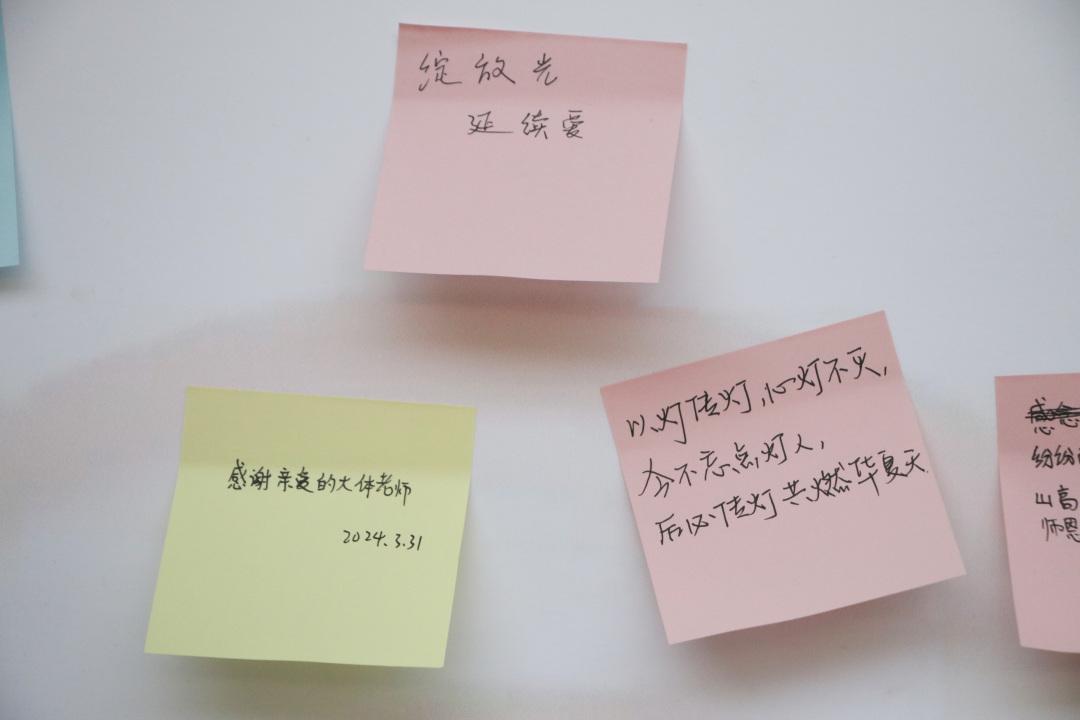 绽放光
延续爱
感谢亲爱的大体老师
2024.3.31
以灯传灯,心灯不灭,
今不忘点灯人,
后必传灯共燃华夏天.
纷纷
山高
师恩